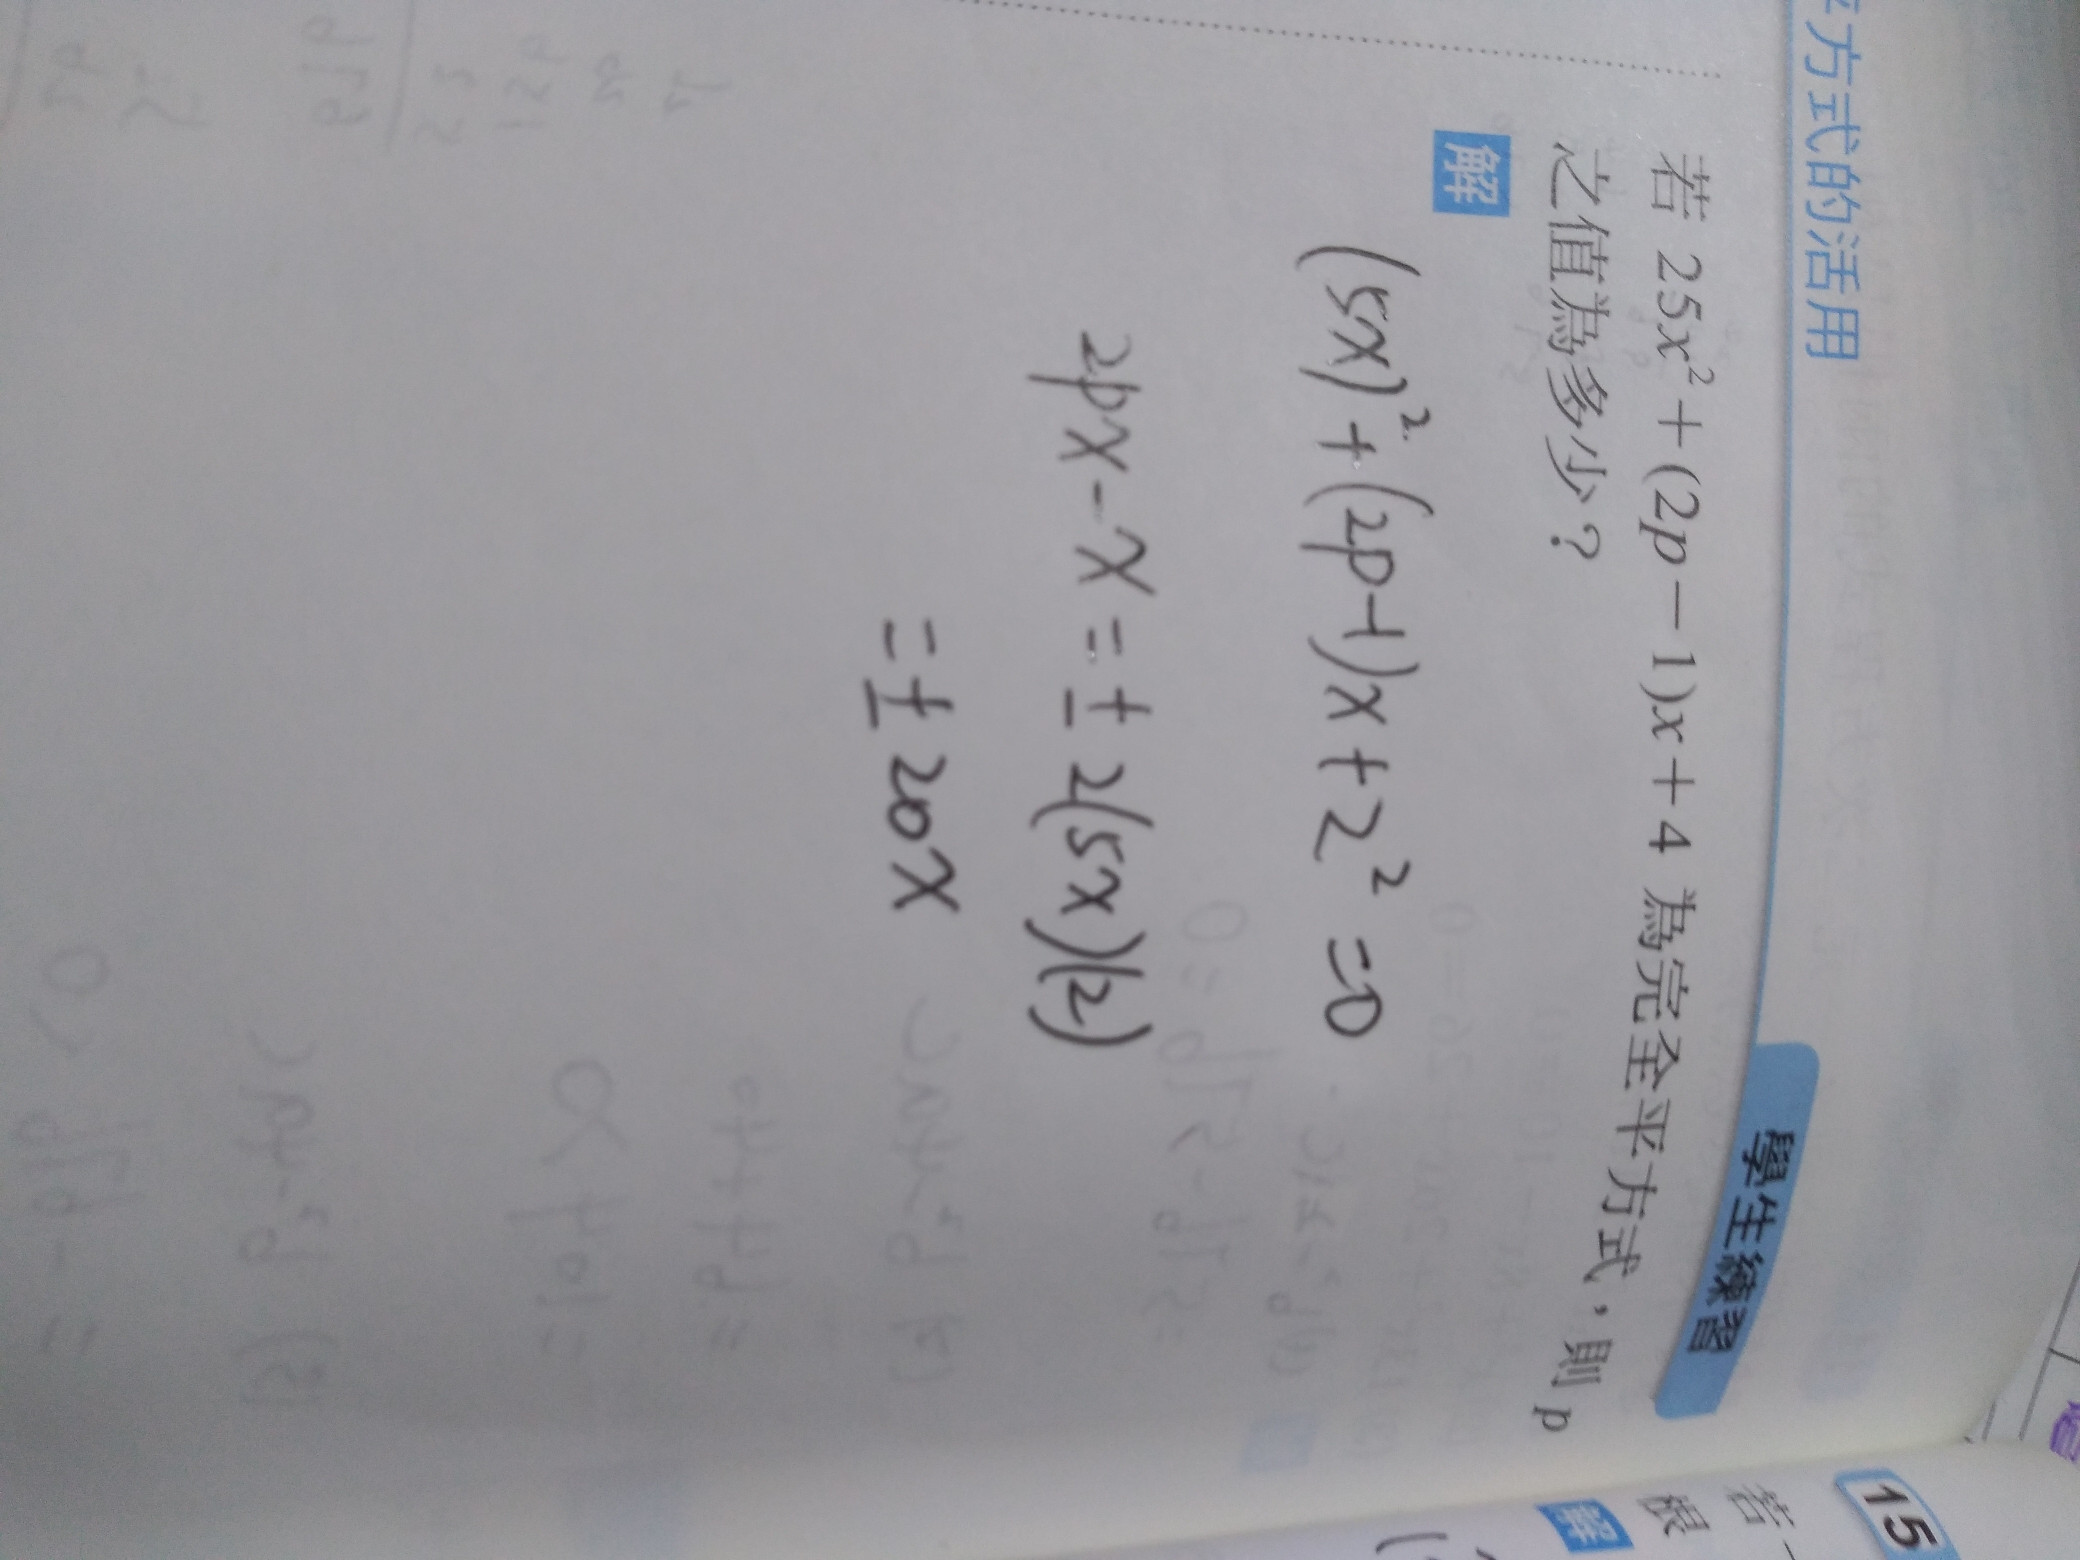 方式的活用
學生練習
若 25x²+(2p－1)x+4 為完全平方式，則 p
之值為多少？
解
(5x)²+(2p-1)x+2²=0
2px-x=±2(5x)(2)
=±20x
15
若一
根
解